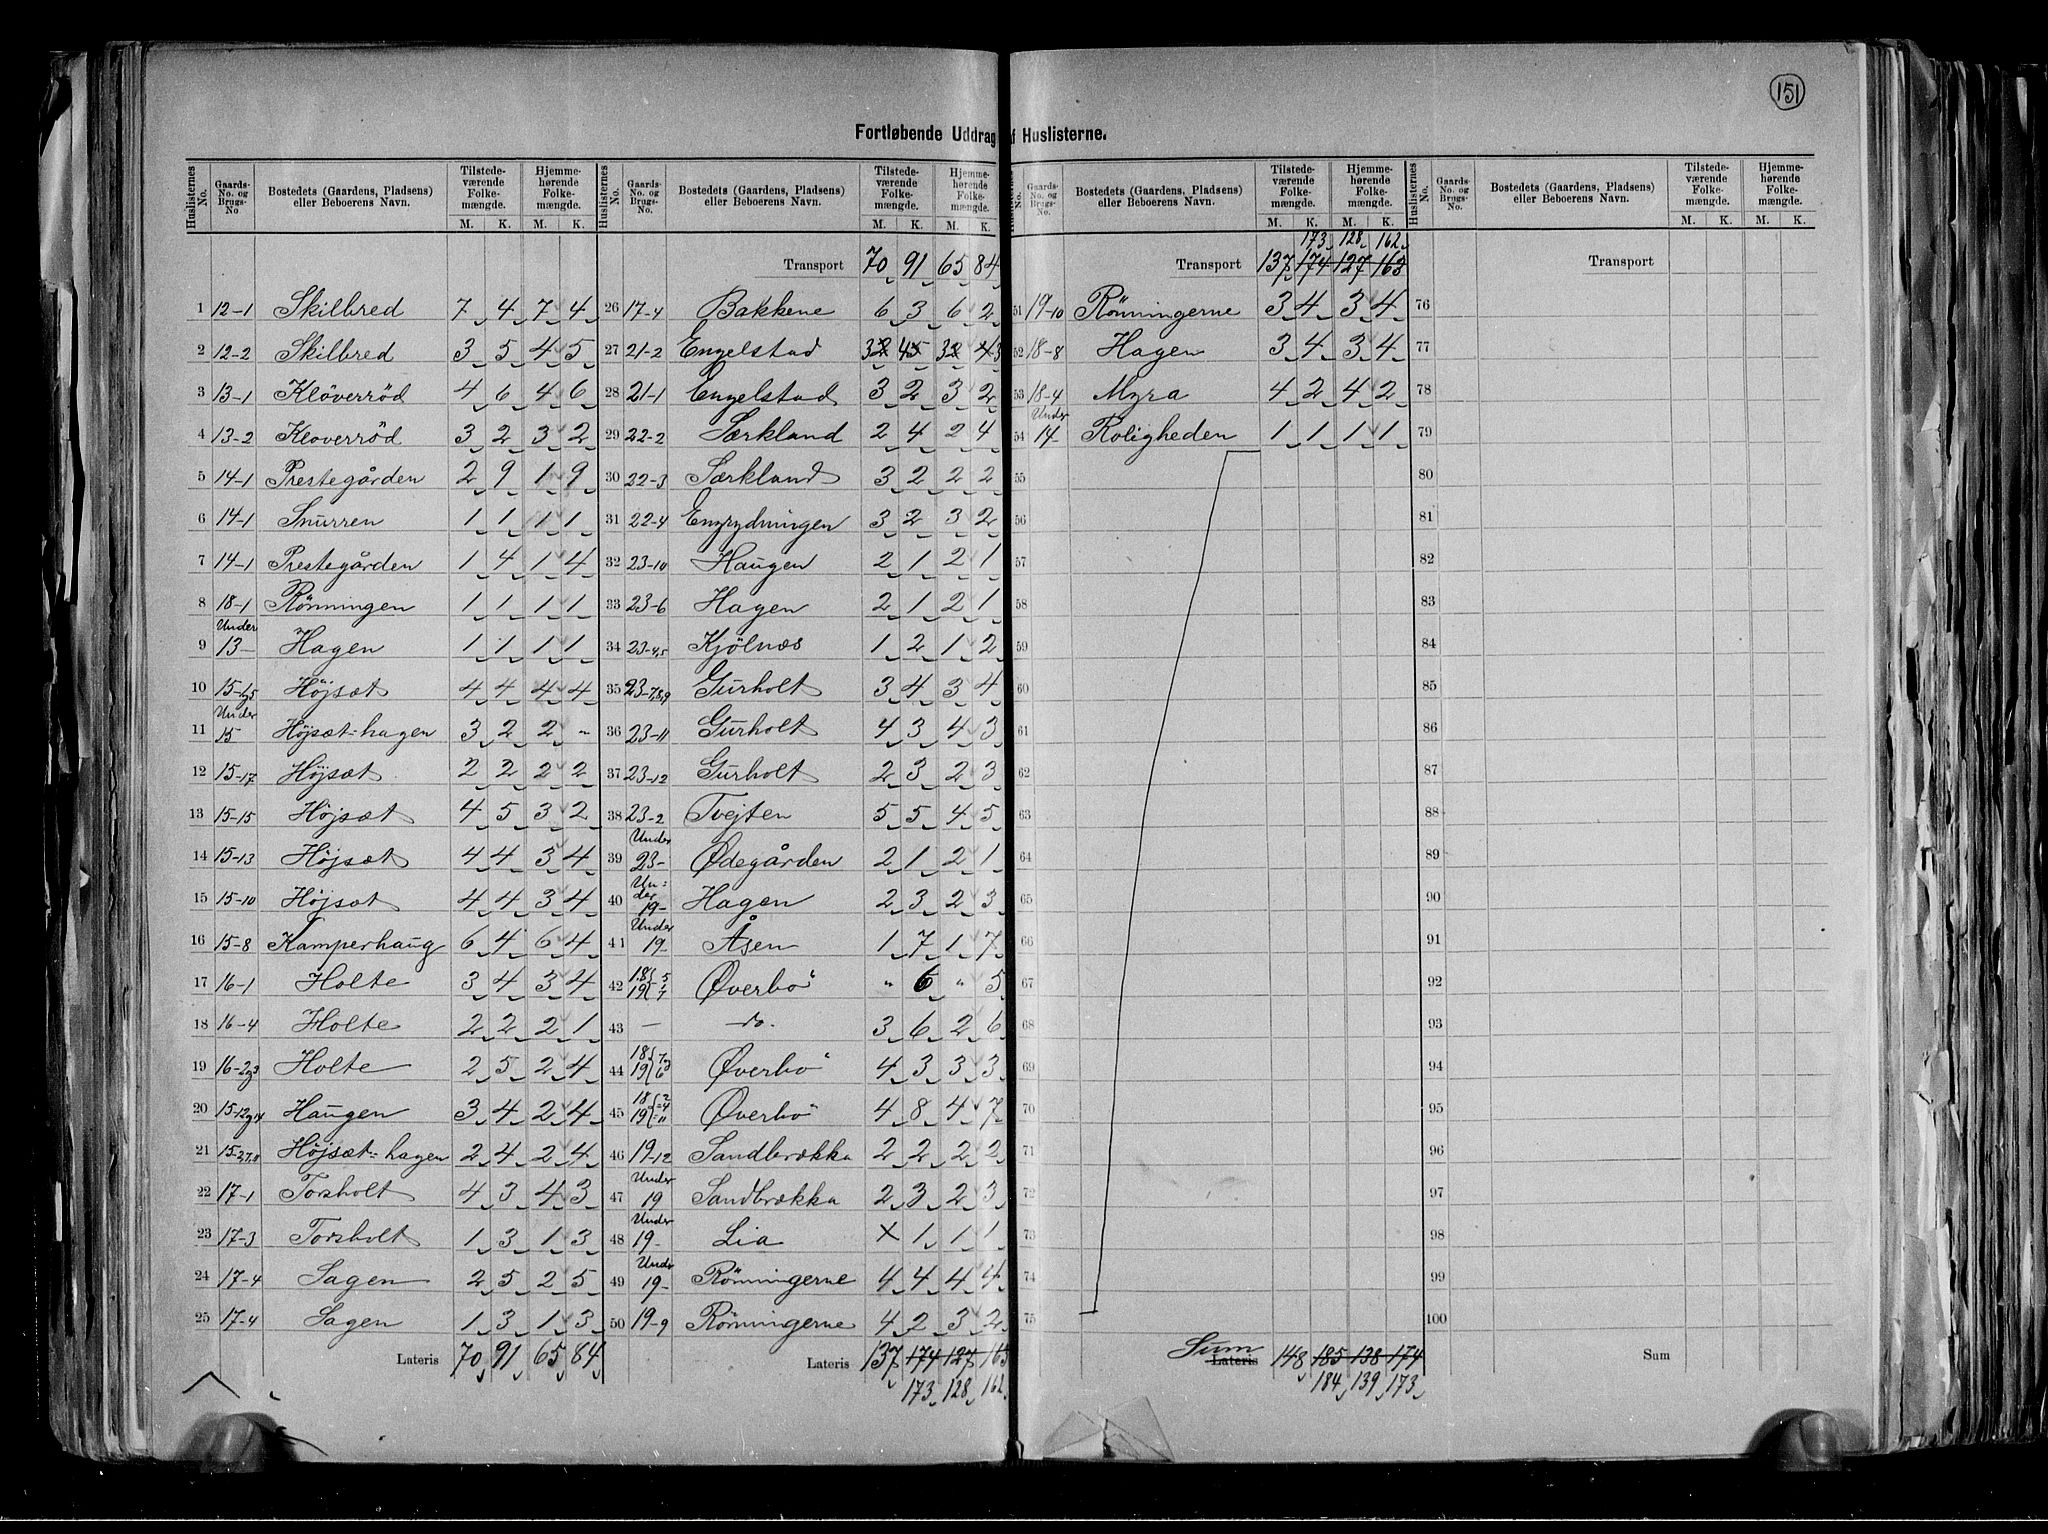 151
Fortløbende Uddrag af Huslisterne.
Huslisternes No. | Gaards-No. og Brugs-No | Bostedets (Gaardens, Pladsens) eller Beboerens Navn. | Tilstedeværende Folkemængde. M. K. | Hjemmehørende Folkemængde. M. K.
1 12-1 Skilbred 7 4 7 4
2 12-2 Skilbred 3 5 4 5
3 13-1 Kløverröd 4 6 4 6
4 13-2 Kloverröd 3 2 3 2
5 14-1 Prestegården 2 9 1 9
6 14-1 Snurren 1 1 1 1
7 14-1 Prestegården 1 4 1 4
8 18-1 Rönningen 1 1 1 1
9 Under 13- Hagen 1 1 1 1
10 15-1,5 Höjsæt 4 4 4 4
11 Under 15 Höjsæt-hagen 3 2 2 -
12 15-17 Höjsæt 2 2 2 2
13 15-15 Höjsæt 4 5 3 2
14 15-13 Höjsæt 4 4 3 4
15 15-10 Höjsæt 4 4 3 4
16 15-8 Kamperhaug 6 4 6 4
17 16-1 Holte 3 4 3 4
18 16-4 Holte 2 2 2 1
19 16-2,3 Holte 2 5 2 4
20 15-12,14 Haugen 3 4 2 4
21 15-2,7,11 Höjsæt-hagen 2 4 2 4
22 17-1 Torsholt 4 3 4 3
23 17-3 Torsholt 1 3 1 3
24 17-4 Sagen 2 5 2 5
25 17-4 Sagen 1 3 1 3
Lateris 70 91 65 84
Huslisternes No. | Gaards-No. og Brugs-No. | Bostedets (Gaardens, Pladsens) eller Beboerens Navn. | Tilstedeværende Folkemængde. M. K. | Hjemmehørende Folkemængde. M. K.
Transport 70 91 65 84
26 17-4 Bakkene 6 3 6 2
27 21-2 Engelstad 3 4 3 3
28 21-1 Engelstad 3 2 3 2
29 22-2 Særkland 2 4 2 4
30 22-3 Særkland 3 2 2 2
31 22-4 Engrydningen 3 2 3 2
32 23-10 Haugen 2 1 2 1
33 23-6 Hagen 2 1 2 1
34 23-4,5 Kjölnæs 1 2 1 2
35 23-7,8,9 Gurholt 3 4 3 4
36 23-11 Gurholt 4 3 4 3
37 23-12 Gurholt 2 3 2 3
38 23-2 Tvejten 5 5 4 5
39 Under 23- Ødegården 2 1 2 1
40 Under 19- Hagen 2 3 2 3
41 Under 19- Åsen 1 7 1 7
42 18 19 Øverbö " 6 " 5
43 — do. 3 6 2 6
44 18 19 Øverbö 4 3 3 3
45 18 19 Øverbö 4 8 4 7
46 19-12 Sandbrækka 2 2 2 2
47 Under 19 Sandbrækka 2 3 2 3
48 Under 19- Lia X 1 1 1
49 Under 19- Rönningerne 4 4 4 4
50 19-9 Rönningerne 4 2 3 2
Lateris 137 174 127 163
173 128 162
Huslisternes No. | Gaards-No. og Brugs-No. | Bostedets (Gaardens, Pladsens) eller Beboerens Navn. | Tilstedeværende Folkemængde. M. K. | Hjemmehørende Folkemængde. M. K.
173 128 162
Transport 137 174 127 163
51 19-10 Rönningerne 3 4 3 4
52 18-8 Hagen 3 4 3 4
53 18-4 Myra 4 2 4 2
54 Under 14- Roligheden 1 1 1 1
55
56
57
58
59
60
61
62
63
64
65
66
67
68
69
70
71
72
73
74
75
Sum
Lateris 148 185 138 174
184 139 173
Huslisternes No. | Gaards-No. og Brugs-No. | Bostedets (Gaardens, Pladsens) eller Beboerens Navn. | Tilstedeværende Folkemængde. M. K. | Hjemmehørende Folkemængde. M. K.
Transport
76
77
78
79
80
81
82
83
84
85
86
87
88
89
90
91
92
93
94
95
96
97
98
99
100
Sum